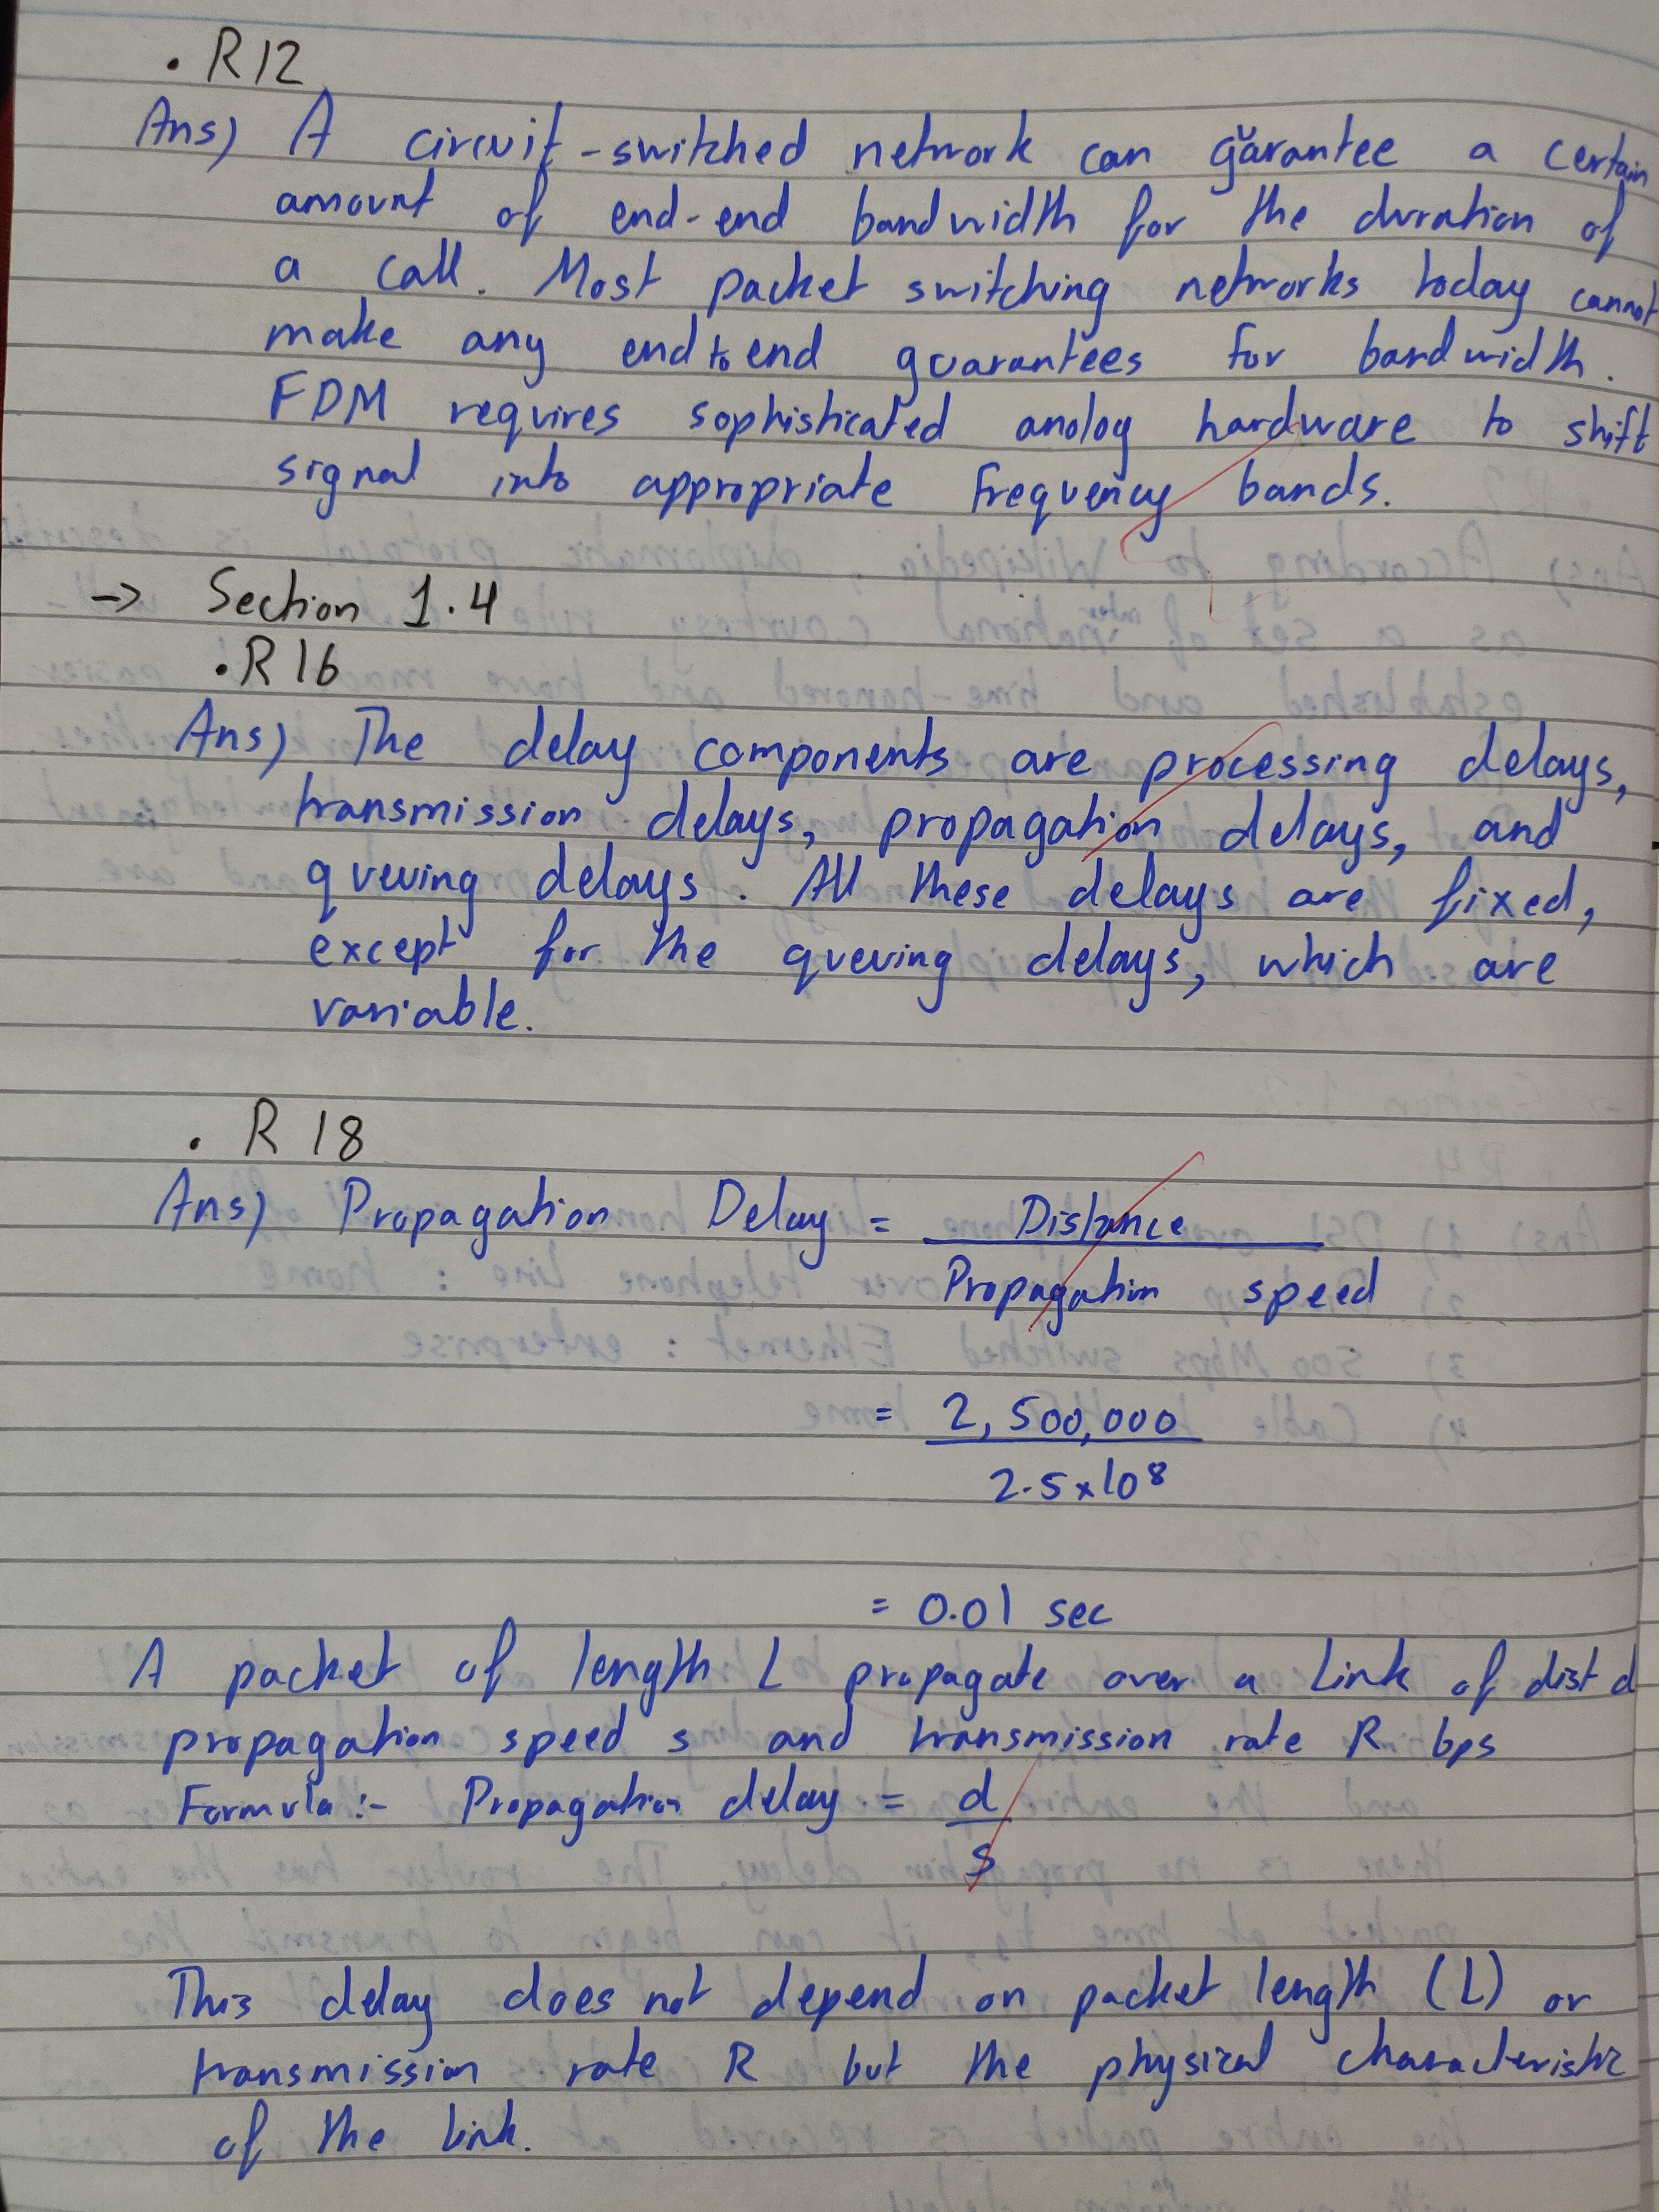 . R12
Ans) A circuit-switched network can garantee a certain
amount of end-end bandwidth for the duration of
a call. Most packet switching networks today cannot
make any end to end guarantees for bandwidth.
FDM requires sophisticated analog hardware to shift
signal into appropriate frequency bands.
→ Section 1.4
. R16
Ans) The delay components are processing delays,
transmission delays, propagation delays, and
queuing delays. All these delays are fixed,
except for the queuing delays, which are
variable.
. R 18
Ans) Propagation Delay = Distance
Propagation speed
= 2,500,000
2.5×10⁸
= 0.01 sec
A packet of length L propagate over a link of dist d
propagation speed s and transmission rate R bps
Formula:- Propagation delay = d
s
This delay does not depend on packet length (L) or
transmission rate R but the physical characteristic
of the link.